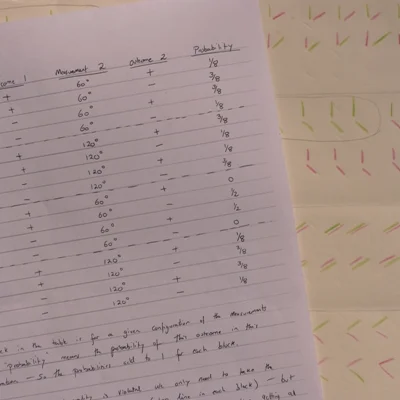 come 1 Measurement 2 Outcome 2 Probability
+ 60° + 1/8
+ 60° - 3/8
- 60° + 3/8
- 60° - 1/8
+ 120° + 3/8
+ 120° - 1/8
- 120° + 1/8
- 120° - 3/8
+ 60° + 0
+ 60° - 1/2
- 60° + 1/2
- 60° - 0
+ 120° + 1/8
+ 120° - 3/8
- 120° + 3/8
- 120° - 1/8
ck in the table is for a given configuration of the measurements
"probability" means the probability of this outcome in this
ration - so the probabilities add to 1 for each block.
ality is violated we only need to take the
line in each block) - but